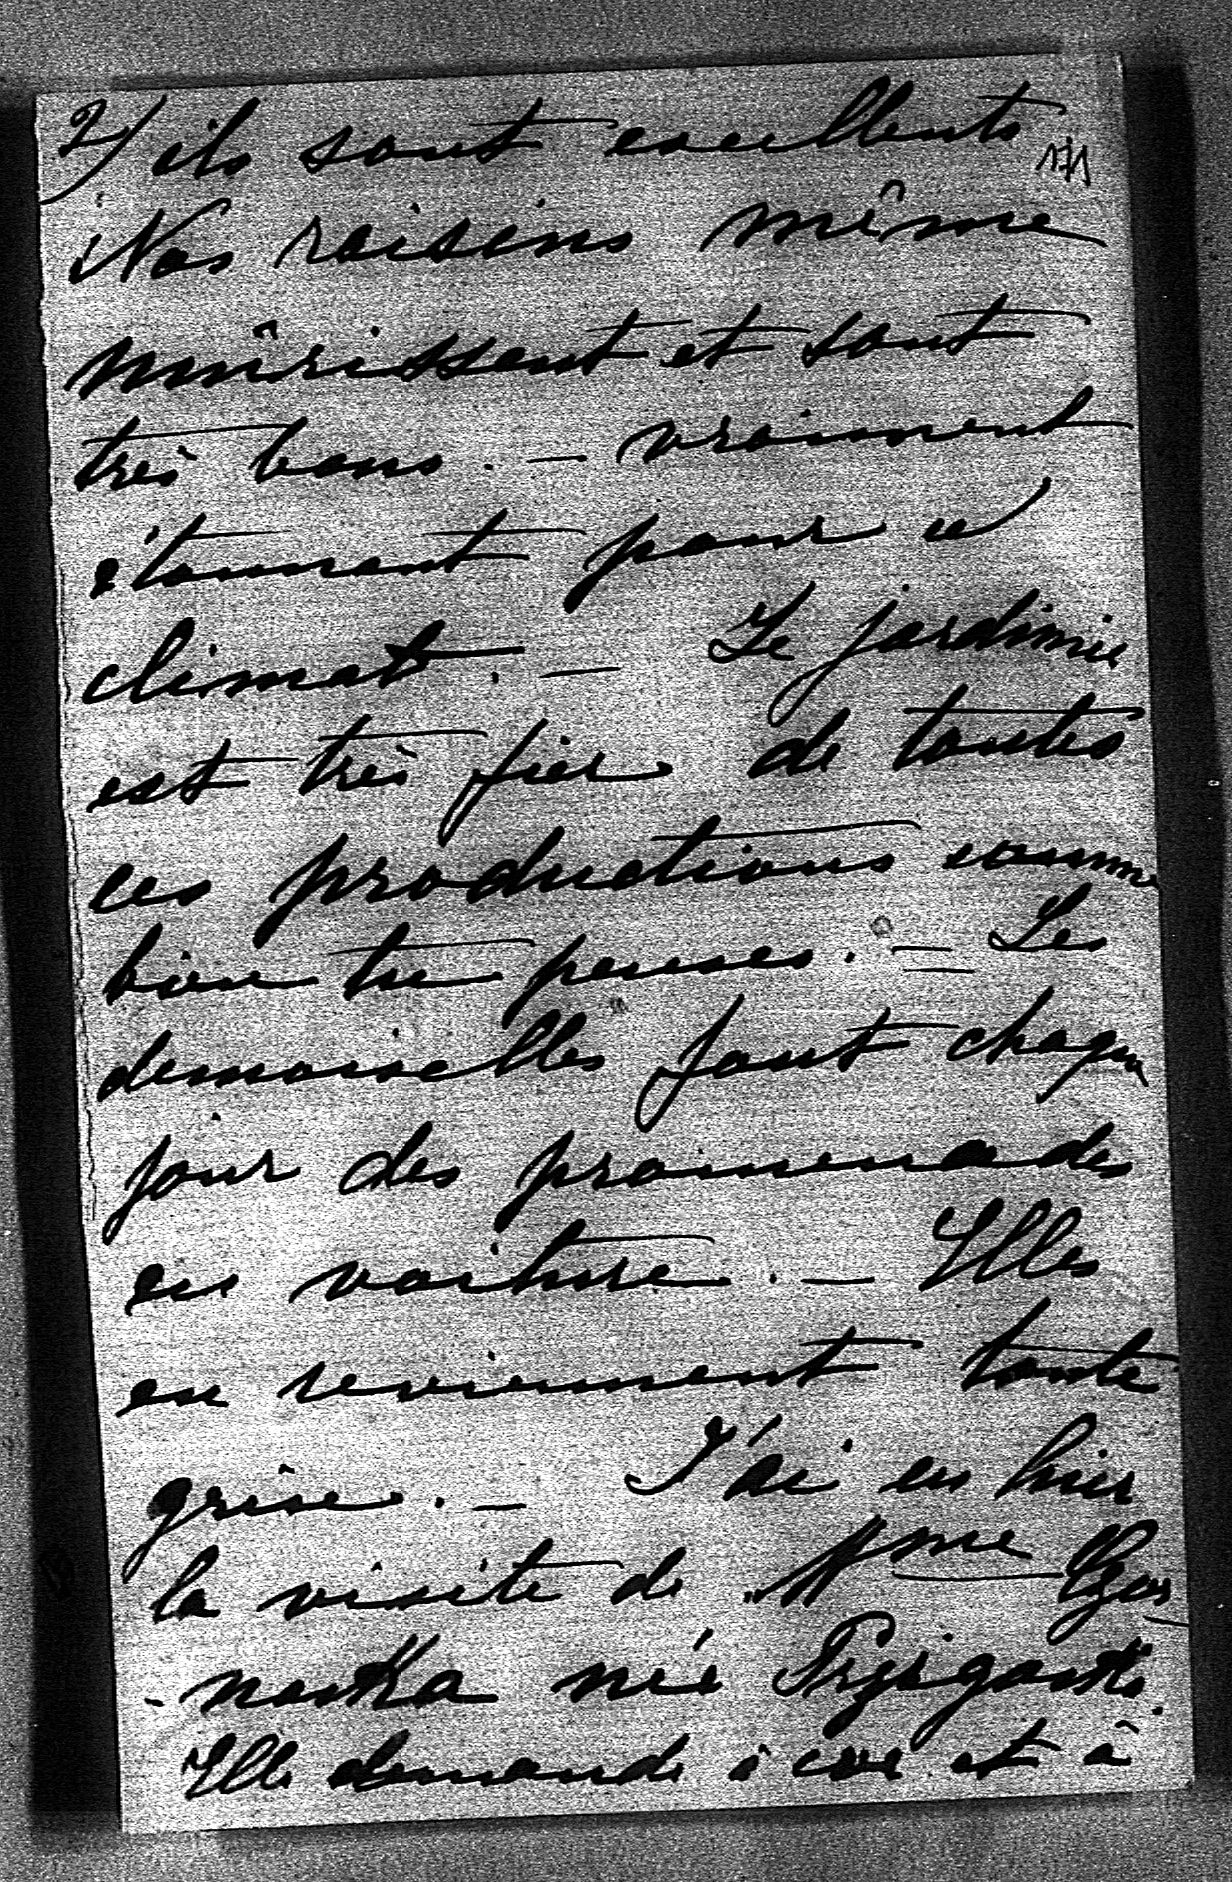 2/ ils sont excellents
171
Nos raisins même
mûrissent et sont
très bons. — vraiment
étonnant pour ce
climat. — Le jardinie
est très fier de toutes
ces productions comme
bien tu penses. — Les
demoiselles font chaque
jour des promenades
en voiture. — Elles
en reviennent toute
grise. — J'ai eu hier
la visite de Mme
- noska née
Elle demande à et à